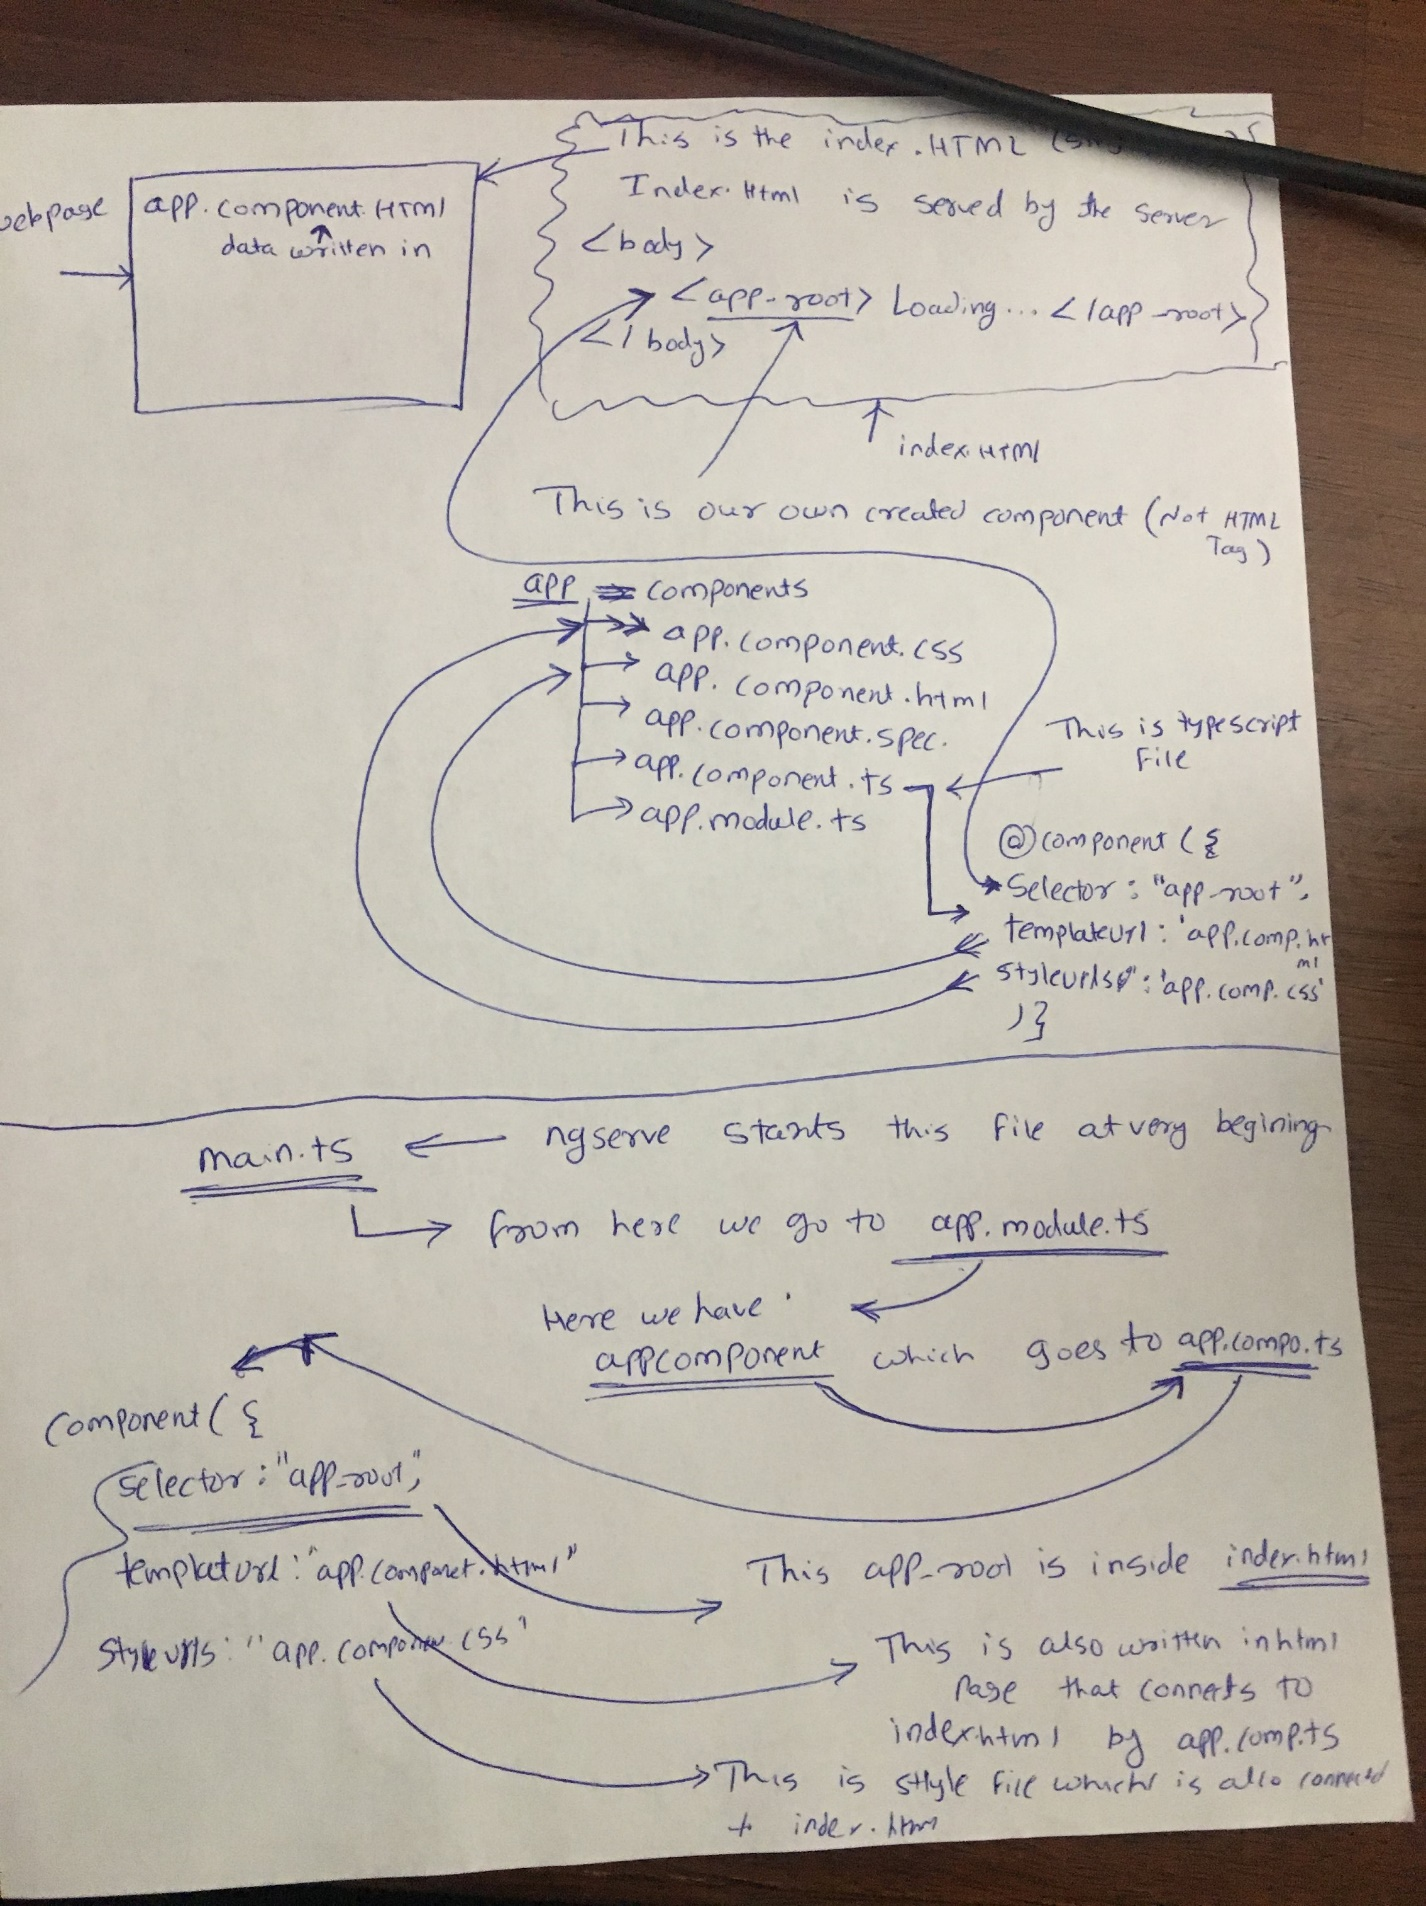 This is the index.HTML
Index.Html is served by the server
<body>
<app-root> Loading... </app-root>
</body>
webpage
app.component.HTML
data written in
index.HTML
This is our own created component (Not HTML
Tag)
app = components
app.component.css
app.component.html
app.component.spec.
app.component.ts
app.module.ts
This is typescript
File
@component({
Selector: "app-root",
templateurl: 'app.comp.ht
ml
styleurls: 'app.comp.css'
)}
main.ts
ngserve starts this file at very begining
from here we go to app.module.ts
Here we have
appcomponent which goes to app.compo.ts
component({
selector: "app-root",
templateurl: "app.componet.html"
styleurls: "app.componen.css'
This app-root is inside index.html
This is also written in html
page that connects to
index.html by app.comp.ts
This is style file which is also connected
to index.html